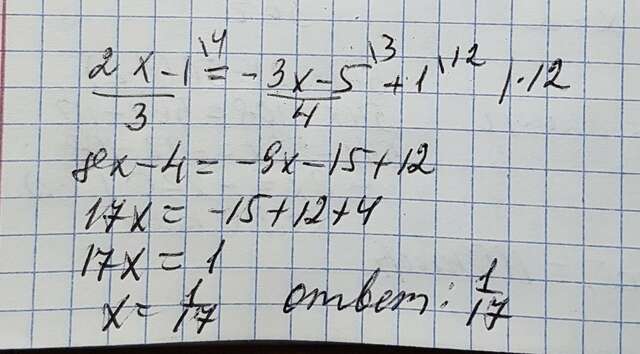 2x-1\4 = - 3x-5\3 + 1\12 | · 12
3 4
8x-4 = -9x-15+12
17x = -15+12+4
17x = 1
x = 1/17 ответ: 1/17